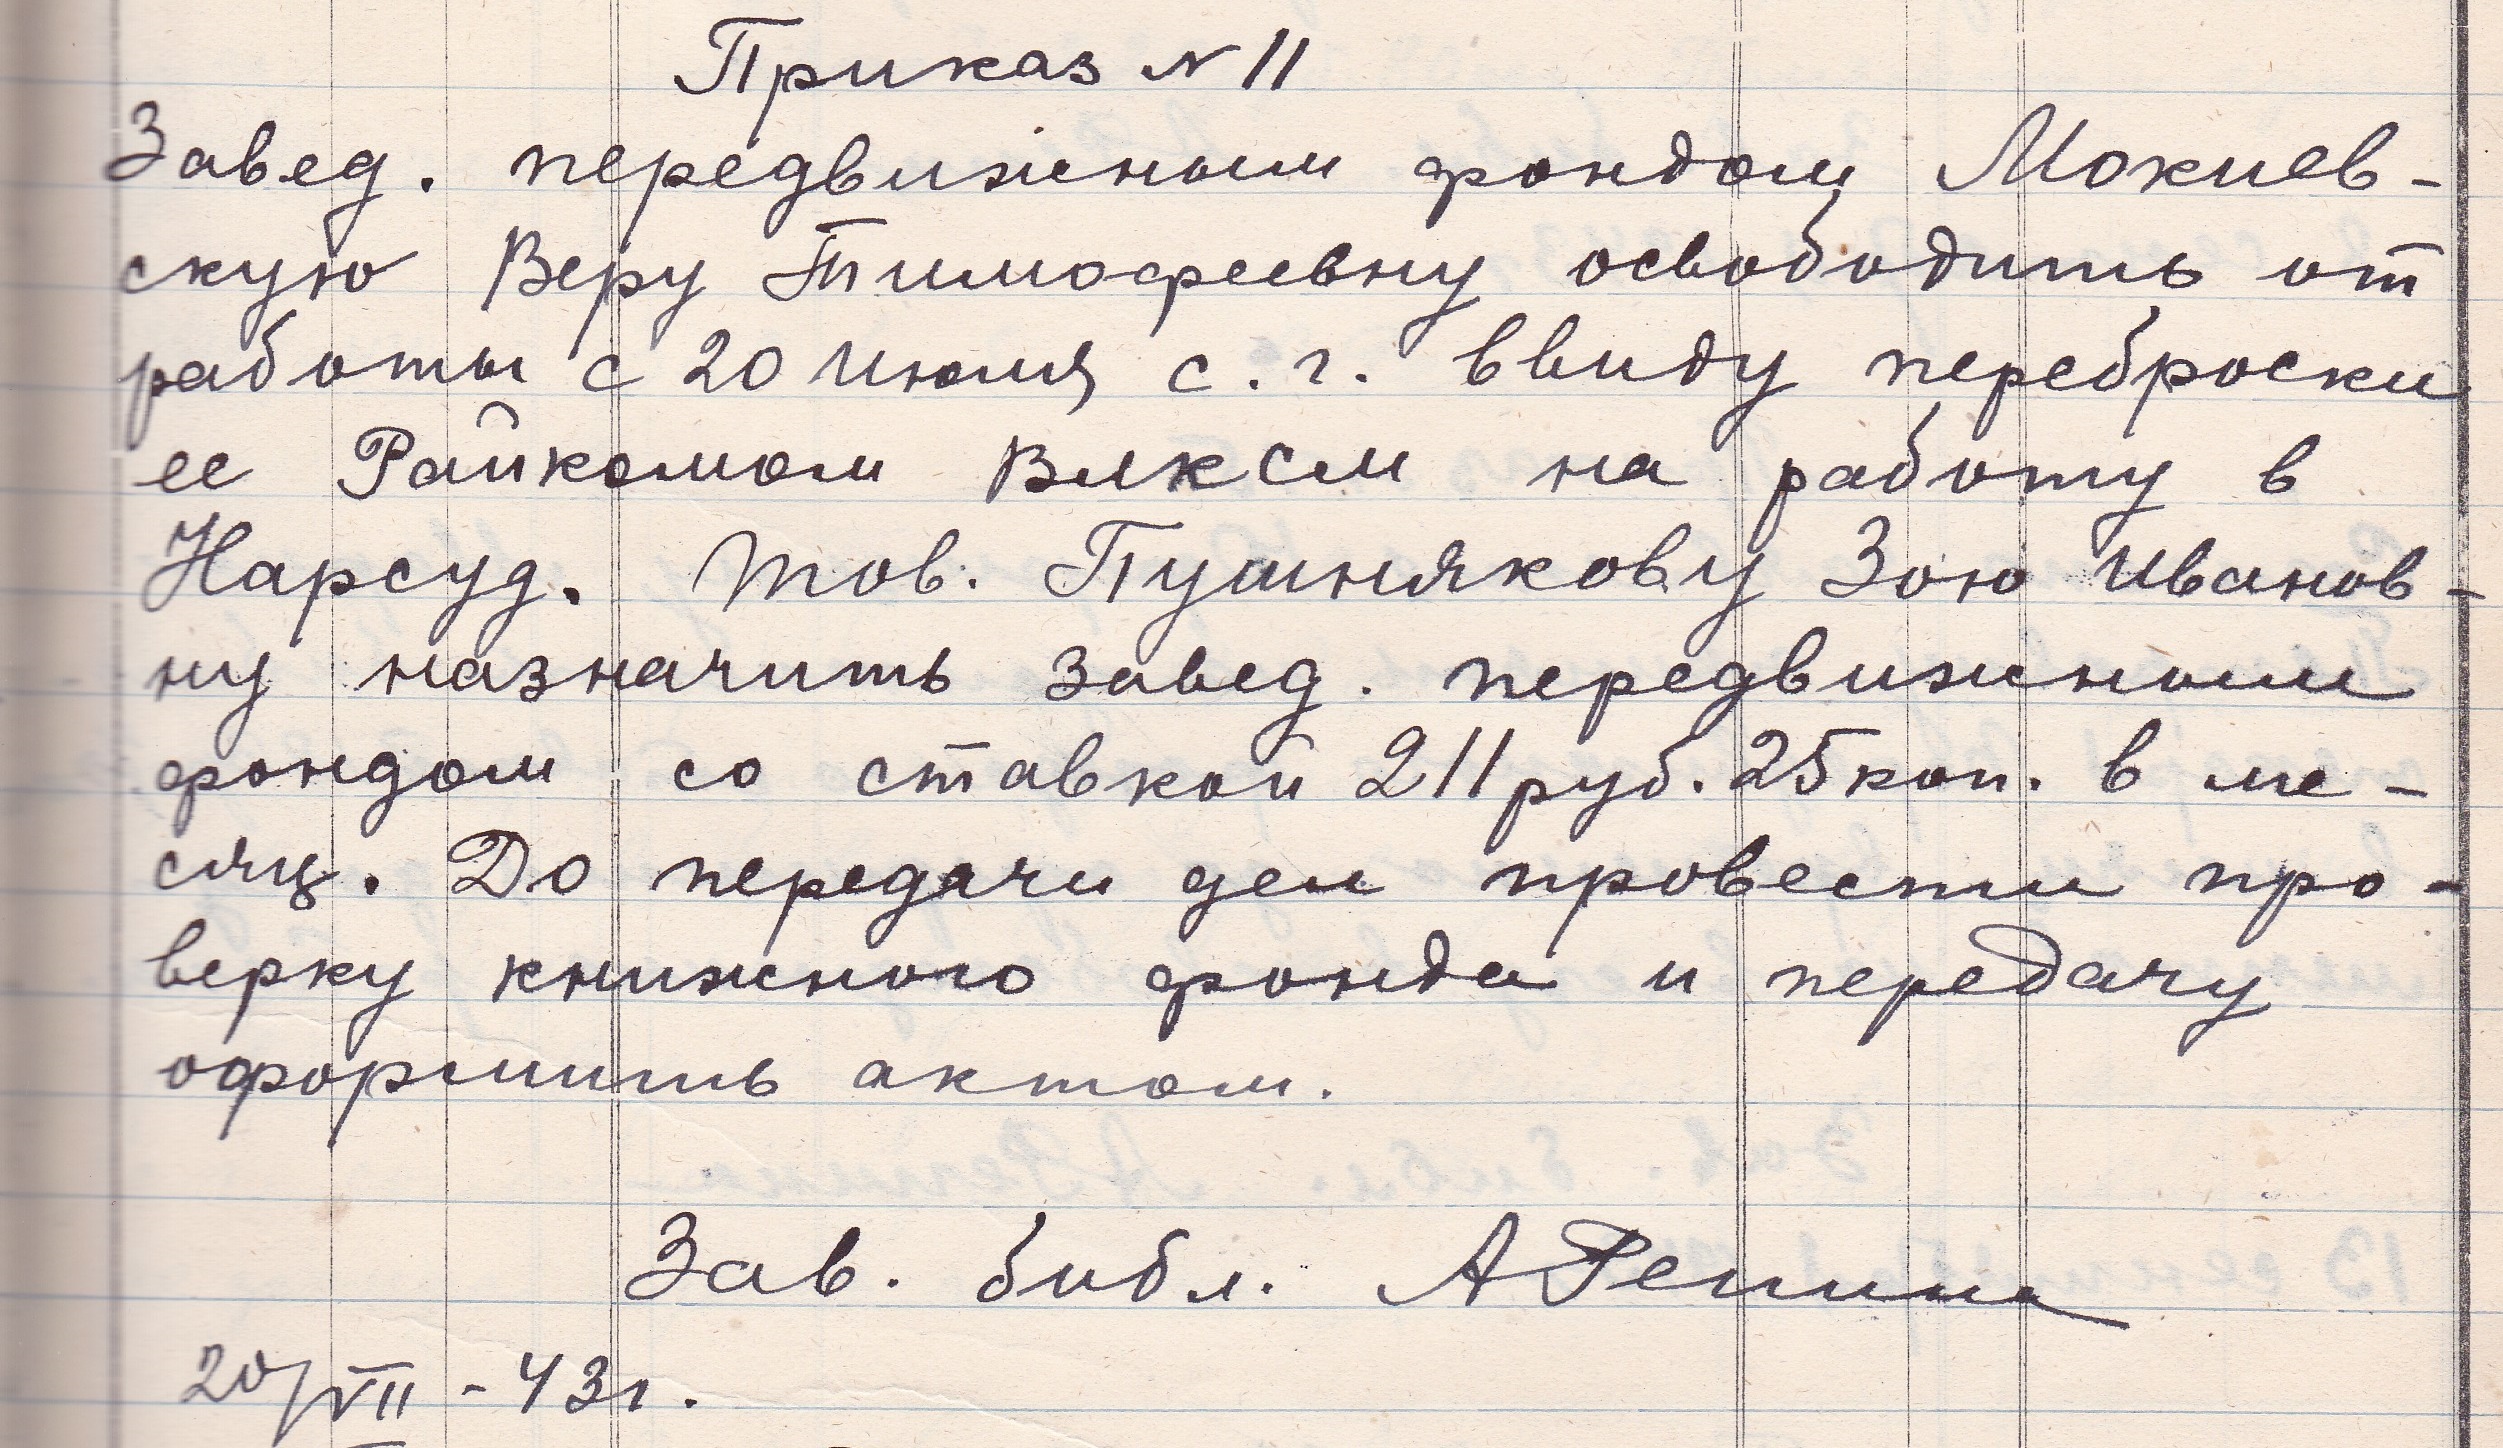 Приказ N 11
Завед. передвижным фондом Мокиев-
скую Веру Тимофеевну освободить от
работы с 20 июля с. г. ввиду переброски
ее Райкомом ВЛКСМ на работу в
Нарсуд. Тов. Пушнякову Зою Иванов-
ну назначить завед. передвижным
фондом со ставкой 211 руб. 25 коп. в ме-
сяц. До передачи дел провести про-
верку книжного фонда и передачу
оформить актом.
Зав. библ. АРепина
20/VII - 43г.